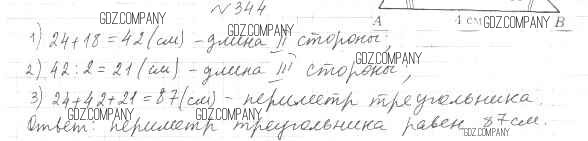 №344
GDZ.COMPANY
GDZ.COMPANY
A 4 см GDZ.COMPANY B
1) 24+18=42 (см) - длина II стороны;
GDZ.COMPANY
2) 42:2=21 (см) - длина III стороны,
GDZ.COMPANY GDZ.COMPANY
3) 24+42+21=87(см) - периметр треугольника.
GDZ.COMPANY
Ответ: периметр треугольника равен 87см.
GDZ.COMPANY